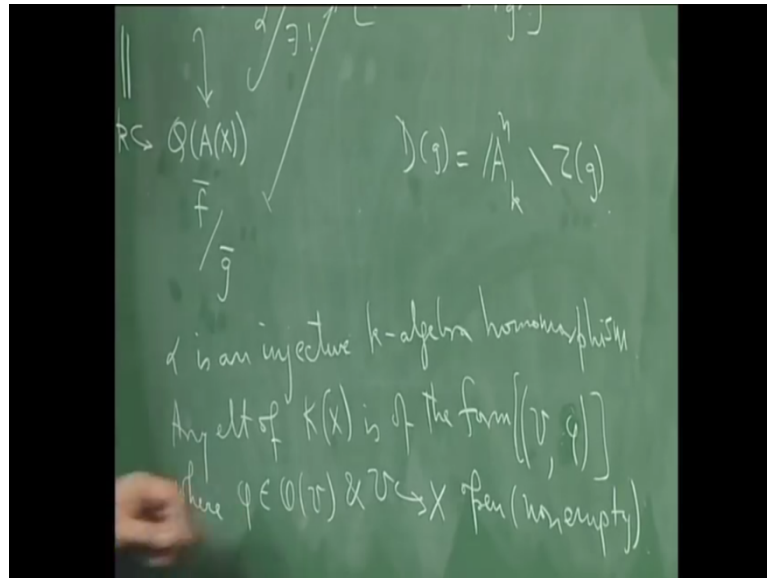 α ∃!
k↪ Q(A(X))
f̄ / ḡ
D(g) = 𝔸ⁿₖ \ Z(g)
α is an injective k-algebra homomorphism.
Any elt of K(X) is of the form [(V, φ)]
where φ ∈ O(V) & V ↪ X open (nonempty).